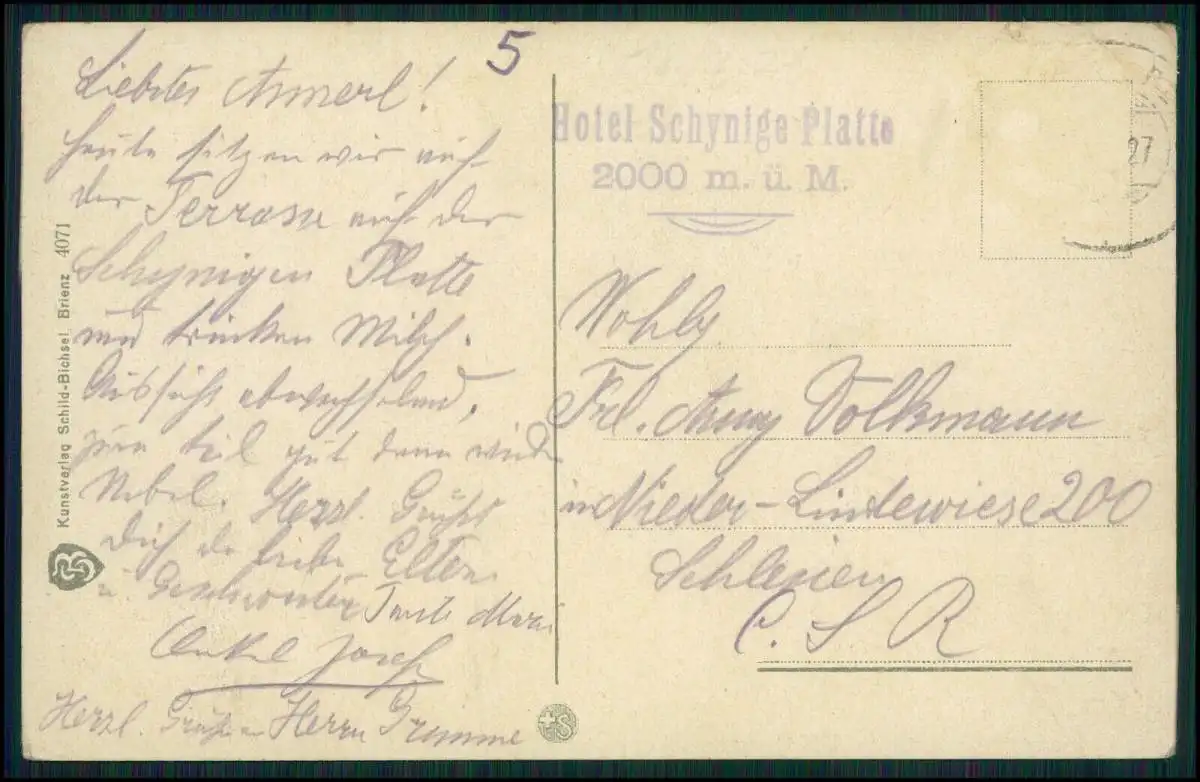 5
Liebstes Annerl!
heute sitzen wir auf
der Terrasse auf der
Schynigen Platte
und trinken Milch.
Aussicht abwechselnd,
zum teil gut dann wieder
Nebel. Herzl. Grüße
Dich die liebe Eltern
u. Geschwister Tante Marie
Onkel Josef
Herzl. Grüße an Herrn Gromme
Kunstverlag Schild-Bichsel Brienz 4071
Hotel Schynige Platte
2000 m. ü. M.
27
Wohlg
Frl. Anny Volkmann
in Nieder-Lindewiese 200
Schlesien
C. S R